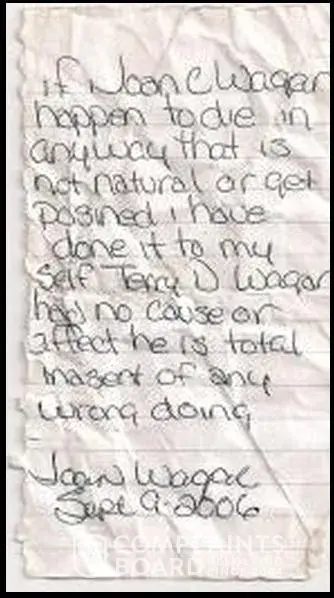 if Joan C Wagar
happen to die in
anyway that is
not natural or get
posined i have
done it to my
self Terry D Wagar
has no cause or
affect he is total
inasent of any
wrong doing
Joan Wagar
Sept 9-2006
COMPLAINTS
BOARD